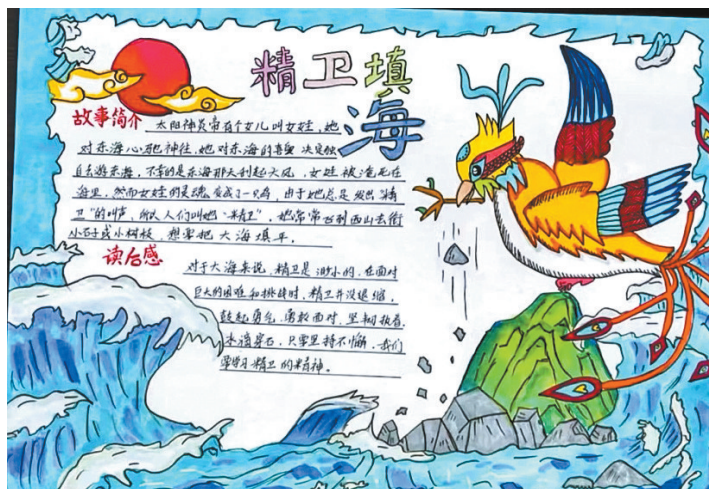 精卫填
海
故事简介
太阳神炎帝有个女儿叫女娃,她
对东海心驰神往,她对东海的喜爱 决定独
自去游东海,不幸的是东海那天刮起大风,女娃被淹死在
海里,然而女娃的灵魂变成了一只鸟,由于她总是发出“精
卫”的叫声,所以人们叫她“精卫”,她常常飞到西山去衔
小石子或小树枝,想要把大海填平。
读后感
对于大海来说,精卫是渺小的,在面对
巨大的困难和挑战时,精卫并没退缩,
鼓起勇气,勇敢面对,坚韧执着,
水滴穿石,只要坚持不懈,我们
要学习精卫的精神。